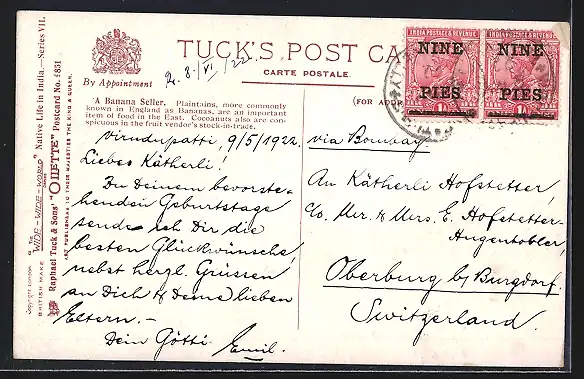 TUCK'S POST CA
CARTE POSTALE.
By Appointment
(FOR ADDR
A Banana Seller. Plaintains, more commonly
known in England as Bananas, are an important
item of food in the East. Cocoanuts also are con-
spicuous in the fruit vendor's stock-in-trade.
INDIA POSTAGE & REVENUE
NINE
PIES
INDIA POSTAGE & REVENUE
NINE
PIES
Virudupatti, 9/5/1922
Liebes Kätherli!
Zu Deinem bevorste-
henden Geburtstage
sende ich Dir die
besten Glückwünsche,
nebst herzl. Grüssen
an Dich & Deine lieben
Eltern. -
Dein Götti Emil.
via Bombay
An Kätherli Hofstetter,
C/o. Mr. & Mrs. E. Hofstetter-
Augentobler,
Oberburg b/ Burgdorf.
Switzerland.
Copyright London
"THE
WIDE-WIDE-WORLD"
SERIES
Native Life in India.—Series VII.
BRITISH MAKE
Raphael Tuck & Sons' "OILETTE" Postcard No. 8851
ART PUBLISHERS TO THEIR MAJESTIES THE KING & QUEEN.